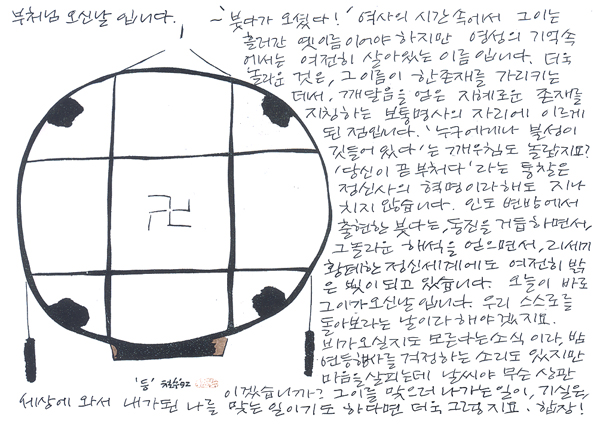 부처님 오신날 입니다.
~'붓다가 오셨다!' 역사의 시간 속에서 그이는
흘러간 옛이름이어야 하지만 영성의 기억속
에서는 여전히 살아있는 이름입니다. 더욱
놀라운 것은, 그 이름이 한존재를 가리키는
데서, 깨달음을 얻은 지혜로운 존재를
지칭하는 보통명사의 자리에 이르게
된 점입니다. '누구에게나 불성이
깃들어 있다'는 깨우침도 놀랍지요?
'당신이 곧 부처다'라는 통찰은
정신사의 혁명이라해도 지나
치지 않습니다. 인도 변방에서
출현한 붓다는, 동진을 거듭하면서,
그 놀라운 해석을 얻으면서, 21세기
황폐한 정신세계에도 여전히 밝
은 빛이 되고 있습니다. 오늘이 바로
그이가 오신날입니다. 우리 스스로를
돌아보라는 날이라 해야겠지요.
비가 오실지도 모른다는 소식이라, 밤
연등행사를 걱정하는 소리도 있지만
마음을 살피는데 날씨야 무슨 상관
이겠습니까? 그이를 맞으러 나가는 일이, 기실은,
세상에 와서 내가된 나를 맞는 일이기도 하다면 더욱 그렇지요. 합장!
卍
'등'